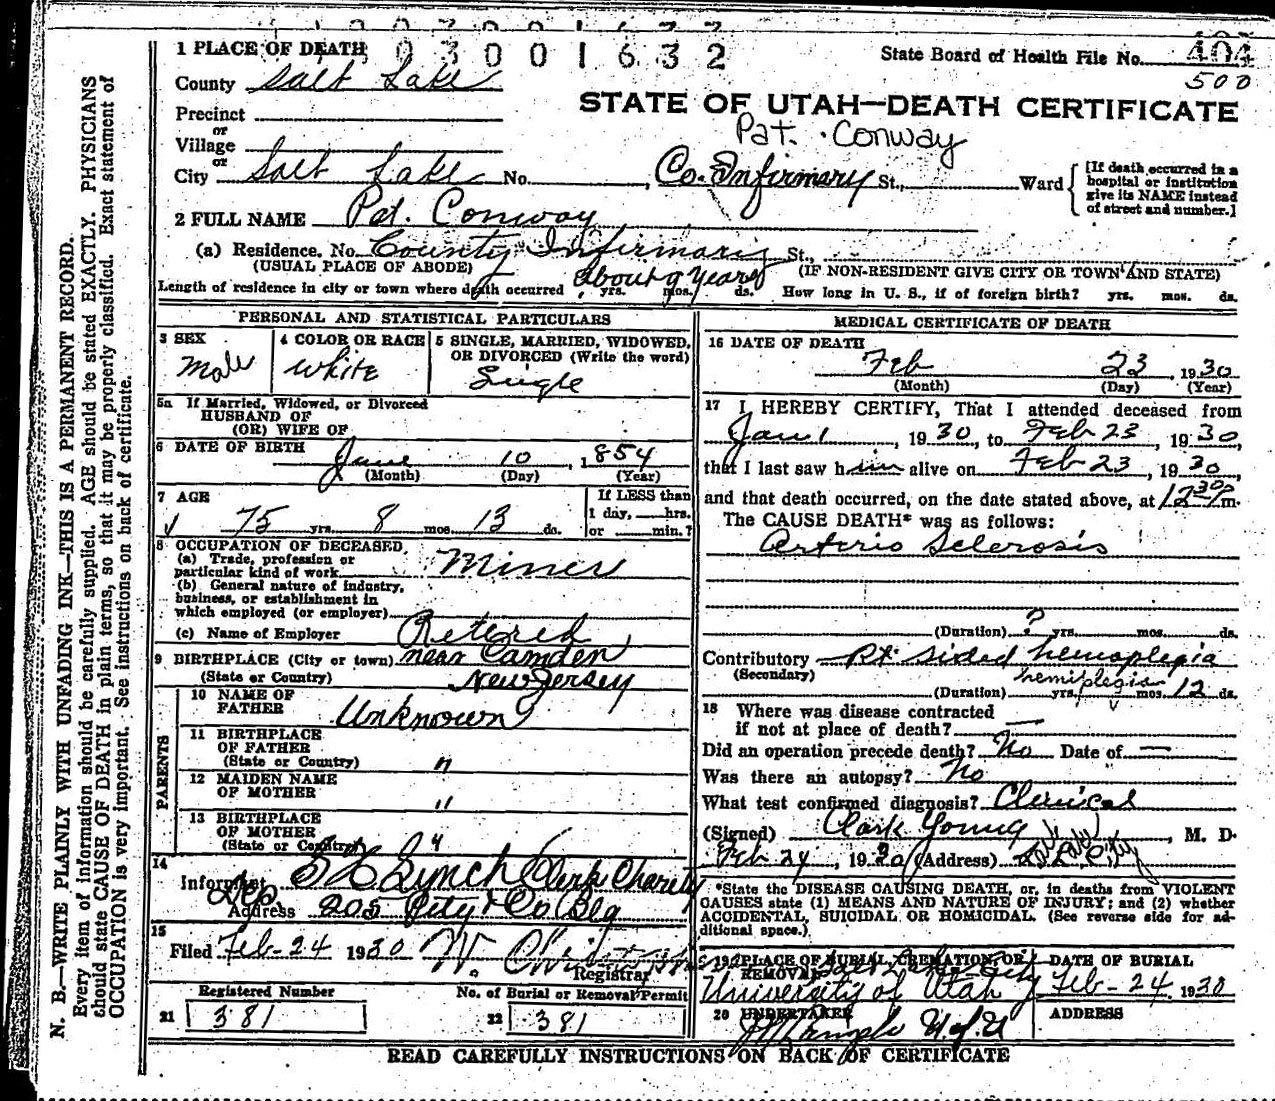 1 PLACE OF DEATH 3 0 0 1 6 3 2 State Board of Health File No. 404
500
County Salt Lake
STATE OF UTAH—DEATH CERTIFICATE
Precinct
Pat. Conway
or
Village
or
City Salt Lake No. , Co. Infirmary St., Ward
[If death occurred in a hospital or institution give its NAME instead of street and number.]
2 FULL NAME Pat. Conway
(a) Residence. No. County Infirmary St.,
(USUAL PLACE OF ABODE) (IF NON-RESIDENT GIVE CITY OR TOWN AND STATE)
about 9 years
Length of residence in city or town where death occurred yrs. mos. ds. How long in U. S., if of foreign birth? yrs. mos. ds.
PERSONAL AND STATISTICAL PARTICULARS
3 SEX 4 COLOR OR RACE 5 SINGLE, MARRIED, WIDOWED,
OR DIVORCED (Write the word)
Male White Single
5a If Married, Widowed, or Divorced
HUSBAND OF
(OR) WIFE OF
6 DATE OF BIRTH June 10 , 1854
(Month) (Day) (Year)
7 AGE If LESS than
1 day, hrs.
75 yrs. 8 mos. 13 ds. or min.?
8 OCCUPATION OF DECEASED
(a) Trade, profession or
particular kind of work Miner
(b) General nature of industry,
business, or establishment in
which employed (or employer)
(c) Name of Employer Retired
9 BIRTHPLACE (City or town) near Camden
(State or Country) New Jersey
PARENTS
10 NAME OF
FATHER Unknown
11 BIRTHPLACE
OF FATHER
(State or Country) "
12 MAIDEN NAME
OF MOTHER "
13 BIRTHPLACE
OF MOTHER
(State or Country) "
14
Informant Lynch Clerk Charity
Dep.
Address 205 City & Co Blg
15
Filed Feb-24 1930 W.
Registrar
Registered Number No. of Burial or Removal Permit
21 381 22 381
MEDICAL CERTIFICATE OF DEATH
16 DATE OF DEATH
Feb 23 , 1930
(Month) (Day) (Year)
17 I HEREBY CERTIFY, That I attended deceased from
Jan 1 , 1930, to Feb 23 , 1930,
that I last saw him alive on Feb 23 , 1930,
and that death occurred, on the date stated above, at 12 30 P m.
The CAUSE DEATH* was as follows:
Arterio Sclerosis
(Duration) ? yrs. mos. ds.
Contributory Rt. sided hemoplegia
(Secondary) hemiplegia
(Duration) yrs. mos. 12 ds.
18 Where was disease contracted
if not at place of death? —
Did an operation precede death? No Date of —
Was there an autopsy? No
What test confirmed diagnosis? Clinical
(Signed) Clark Young , M. D.
Feb 24 , 1930 (Address) Salt Lake City
*State the DISEASE CAUSING DEATH, or, in deaths from VIOLENT
CAUSES state (1) MEANS AND NATURE OF INJURY; and (2) whether
ACCIDENTAL, SUICIDAL OR HOMICIDAL. (See reverse side for ad-
ditional space.)
19 PLACE OF BURIAL, CREMATION, OR DATE OF BURIAL
REMOVAL Salt Lake City
University of Utah Feb-24 1930
20 UNDERTAKER ADDRESS
U of U
READ CAREFULLY INSTRUCTIONS ON BACK OF CERTIFICATE
N. B.—WRITE PLAINLY WITH UNFADING INK—THIS IS A PERMANENT RECORD.
Every item of information should be carefully supplied. AGE should be stated EXACTLY. PHYSICIANS
should state CAUSE OF DEATH in plain terms, so that it may be properly classified. Exact statement of
OCCUPATION is very important. See instructions on back of certificate.